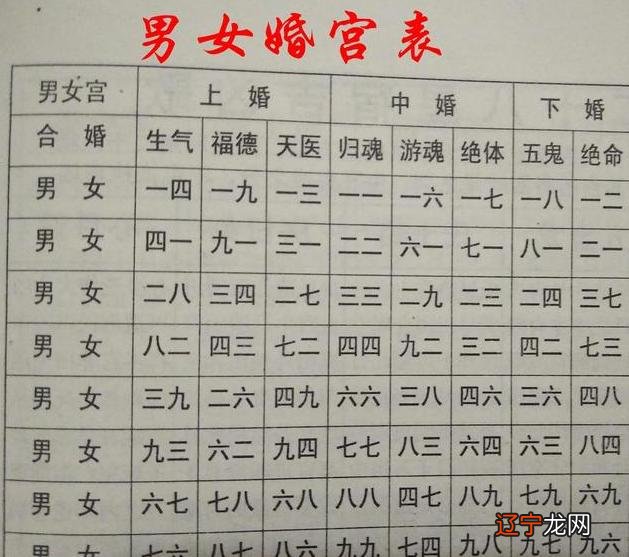 男女婚宫表
男女宫 上 婚 中 婚 下 婚
合 婚 生气 福德 天医 归魂 游魂 绝体 五鬼 绝命
男 女 一四 一九 一三 一一 一六 一七 一八 一二
男 女 四一 九一 三一 二二 六一 七一 八一 二一
男 女 二八 三四 二七 三三 二九 二三 二四 三七
男 女 八二 四三 七二 四四 九二 三二 四二 七三
男 女 三九 二六 四九 六六 三八 四六 三六 四八
男 女 九三 六二 九四 七七 八三 六四 六三 八四
男 女 六七 七八 六八 八八 四七 八九 七九 六九
男 女 七六 八七 八六 九九 七四 九八 九七 九六
辽宁龙网